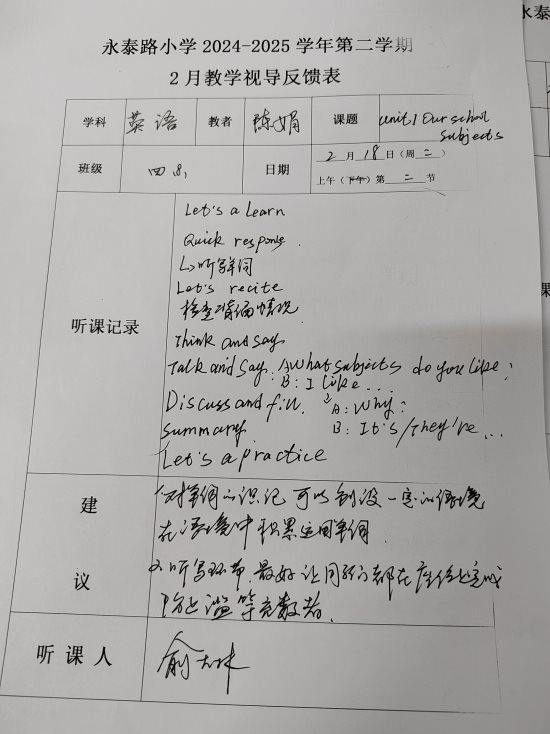 永泰路小学 2024-2025 学年第二学期
2 月教学视导反馈表
学科 英语 教者 陈娟 课题 unit1 Our school subjects
班级 四 日期 2 月 18 日（周二）
上午（下午）第 二 节
听课记录
Let's a learn
Quick response.
↳听写单词
Let's recite
检查背诵情况
Think and say
Talk and say. A: What subjects do you like?
B: I like...
Discuss and fill. A: Why?
summary. B: It's/They're...
Let's a practice
建议
对单词的识记 可以创设一定的语境
在语境中积累运用单词.
2.听写环节,最好让同学们都在座位上完成
防止滥竽充数者.
听课人